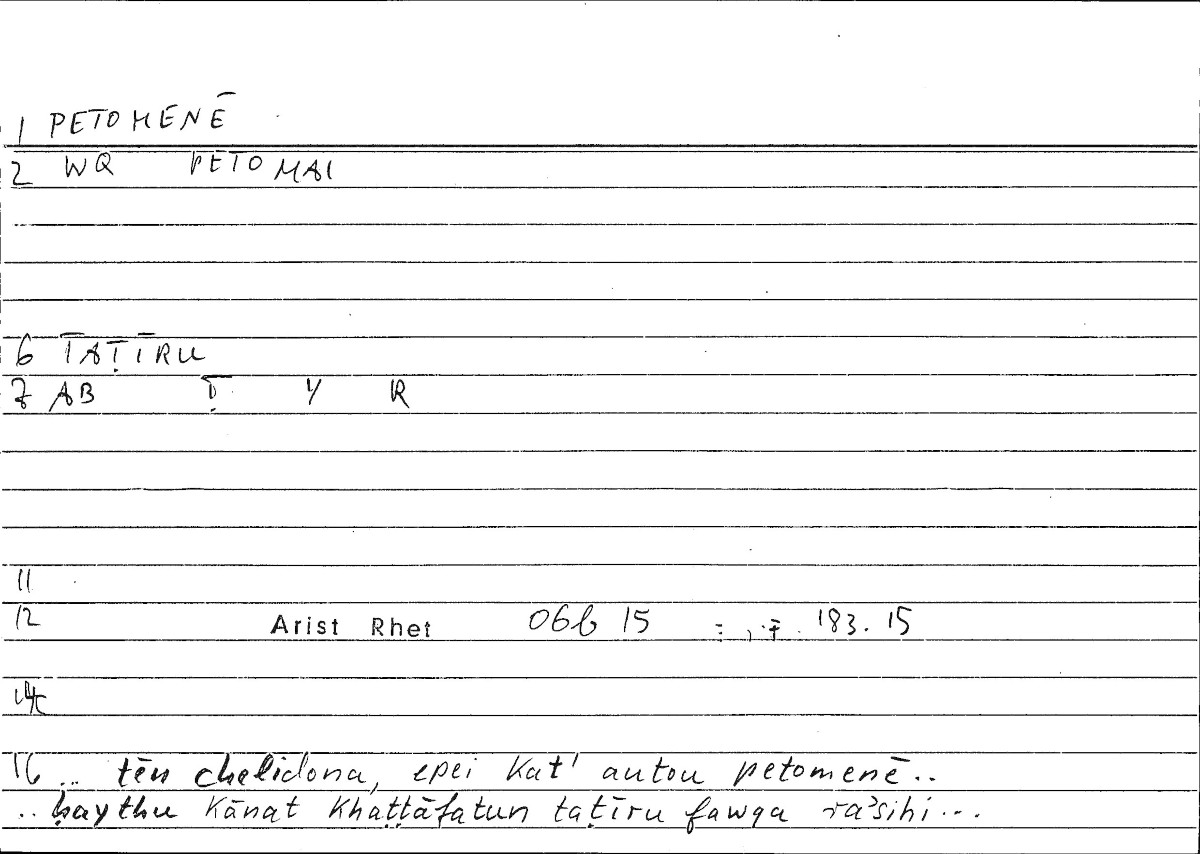 1 PETOMENĒ
2 WQ PETOMAI
6 TAṬĪRU
7 AB Ṭ Y R
11
12 Arist Rhet 06b 15 183.15
14
16 .. tēn chelidona, epei kat' autou petomenē..
.. ḥaythu kānat khaṭṭāfatun taṭīru fawqa ra'sihi...